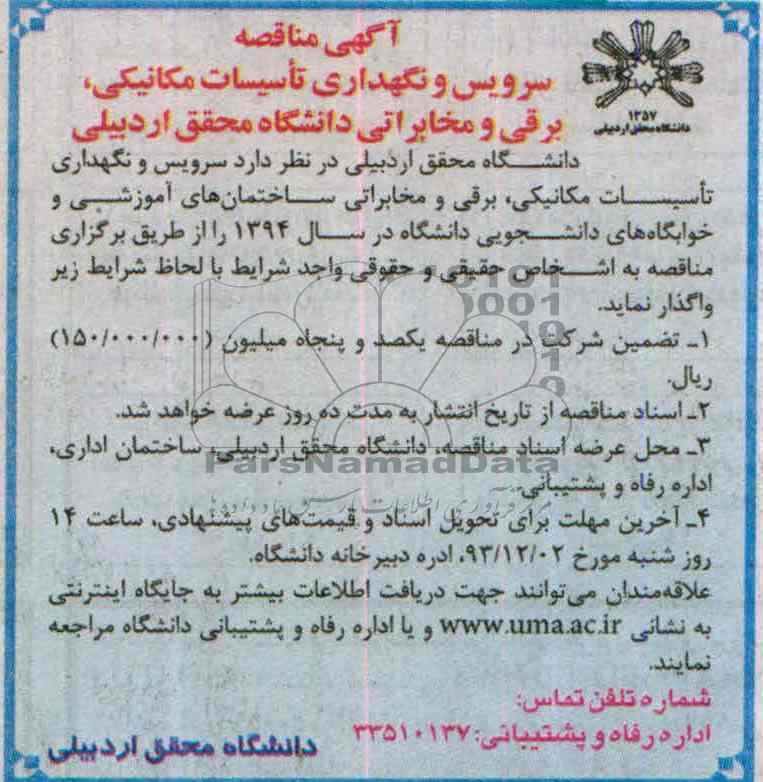 آگهی مناقصه
سرویس و نگهداری تأسیسات مکانیکی،
برقی و مخابراتی دانشگاه محقق اردبیلی
۱۳۵۷
دانشگاه محقق اردبیلی
دانشگاه محقق اردبیلی در نظر دارد سرویس و نگهداری
تأسیسات مکانیکی، برقی و مخابراتی ساختمان‌های آموزشی و
خوابگاه‌های دانشجویی دانشگاه در سال ۱۳۹۴ را از طریق برگزاری
مناقصه به اشخاص حقیقی و حقوقی واجد شرایط با لحاظ شرایط زیر
واگذار نماید.
۱ـ تضمین شرکت در مناقصه یکصد و پنجاه میلیون (۱۵۰/۰۰۰/۰۰۰)
ریال.
۲ـ اسناد مناقصه از تاریخ انتشار به مدت ده روز عرضه خواهد شد.
۳ـ محل عرضه اسناد مناقصه، دانشگاه محقق اردبیلی، ساختمان اداری،
ParsNamadData
اداره رفاه و پشتیبانی.
۴ـ آخرین مهلت برای تحویل اسناد و قیمت‌های پیشنهادی، ساعت ۱۴
روز شنبه مورخ ۹۳/۱۲/۰۲، ادره دبیرخانه دانشگاه.
علاقه‌مندان می‌توانند جهت دریافت اطلاعات بیشتر به جایگاه اینترنتی
به نشانی www.uma.ac.ir و یا اداره رفاه و پشتیبانی دانشگاه مراجعه
نمایند.
شماره تلفن تماس:
اداره رفاه و پشتیبانی: ۳۳۵۱۰۱۳۷
دانشگاه محقق اردبیلی